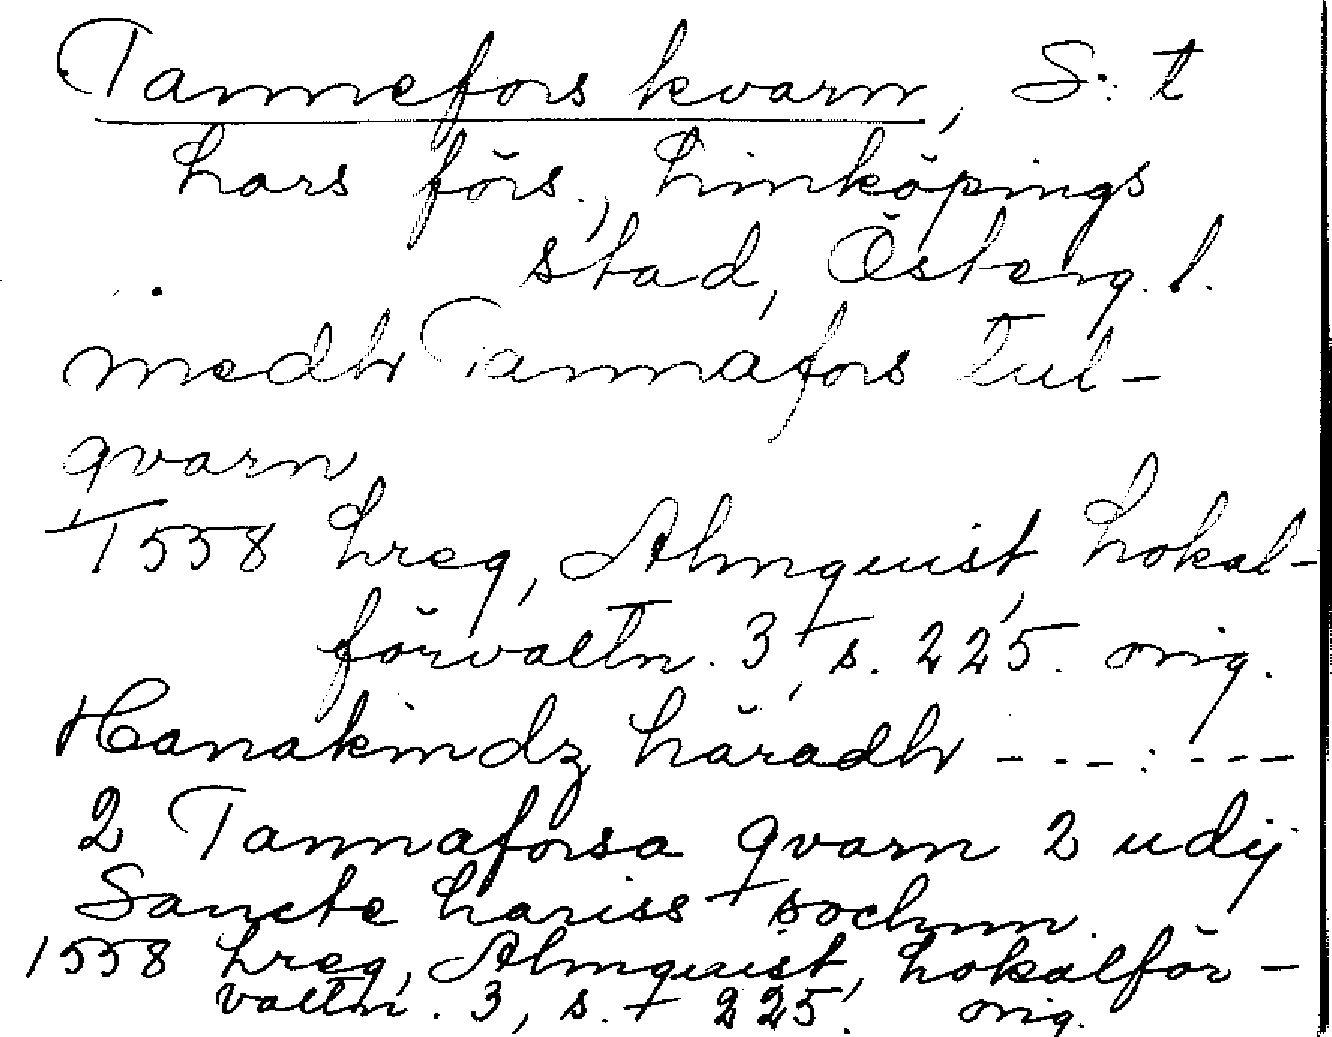 Tannefors kvarn, S:t
Lars förs., Linköpings
stad, Österg. l.
medh Tannafors tul-
qvarn
1558 Lreg, Almquist, Lokal-
förvaltn. 3, s. 225. orig.
Hanakindz häradh - - - : - - -
2 Tannaforsa qvarn 2 udij
Sancte Lariss sochnn.
1558 Lreg, Almquist, Lokalför-
valtn. 3, s. 225. orig.